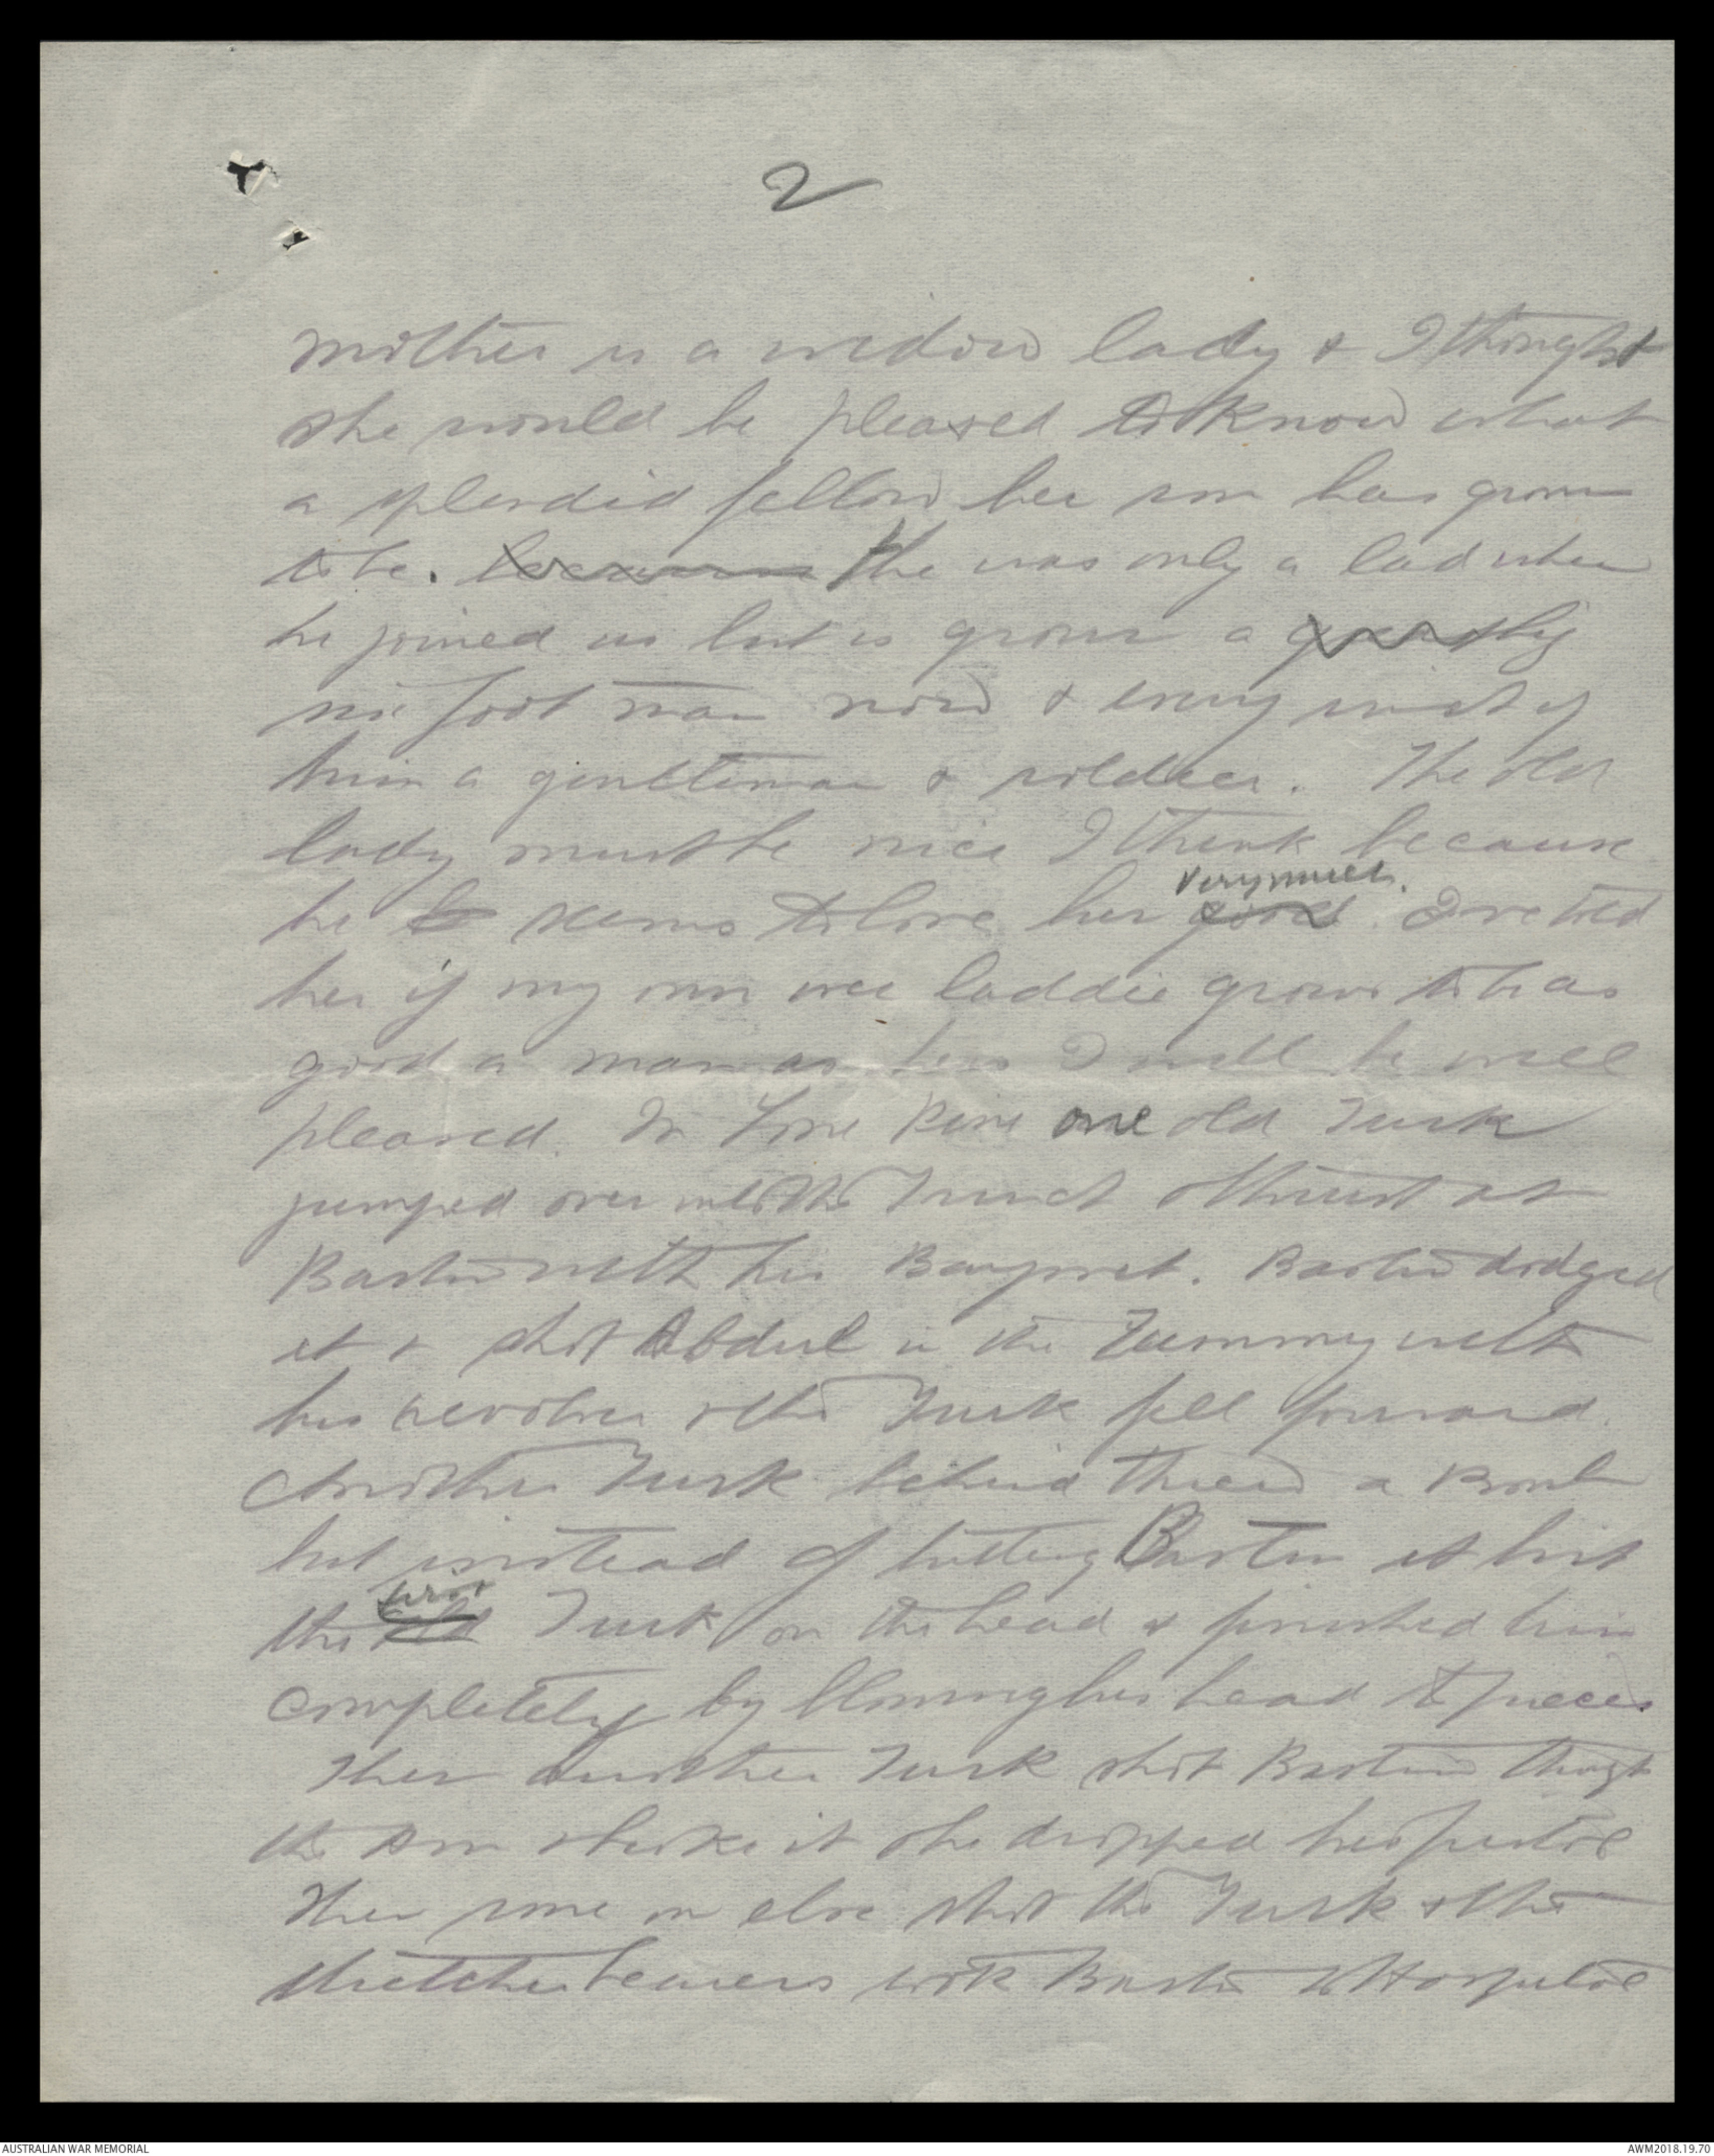 2
mother is a widow lady & I thought
she would be pleased to know what
a splendid fellow her son has grown
to be. because he was only a lad when
he joined us but is grown a
six foot man now & every inch of
him a gentleman & soldier. The old
lady must be nice I think because
very much.
he seems to love her good. I've told
her if my own wee laddie grows to be as
good a man as hers I will be well
pleased. In Lone Pine one old Turk
jumped over into the trench & thrust at
Barton with his Bayonet. Barton dodged
it & shot Abdul in the Tummy with
his revolver & the Turk fell forward.
Another Turk behind threw a Bomb
but instead of hitting Barton it hit
first
the old Turk on the head & finished him
completely by blowing his head to pieces.
Then another Turk shot Barton through
the arm & broke it & he dropped his pistol
Then some one else shot the Turk & the
stretcher bearers took Barton to Hospital
AUSTRALIAN WAR MEMORIAL
AWM2018.19.70